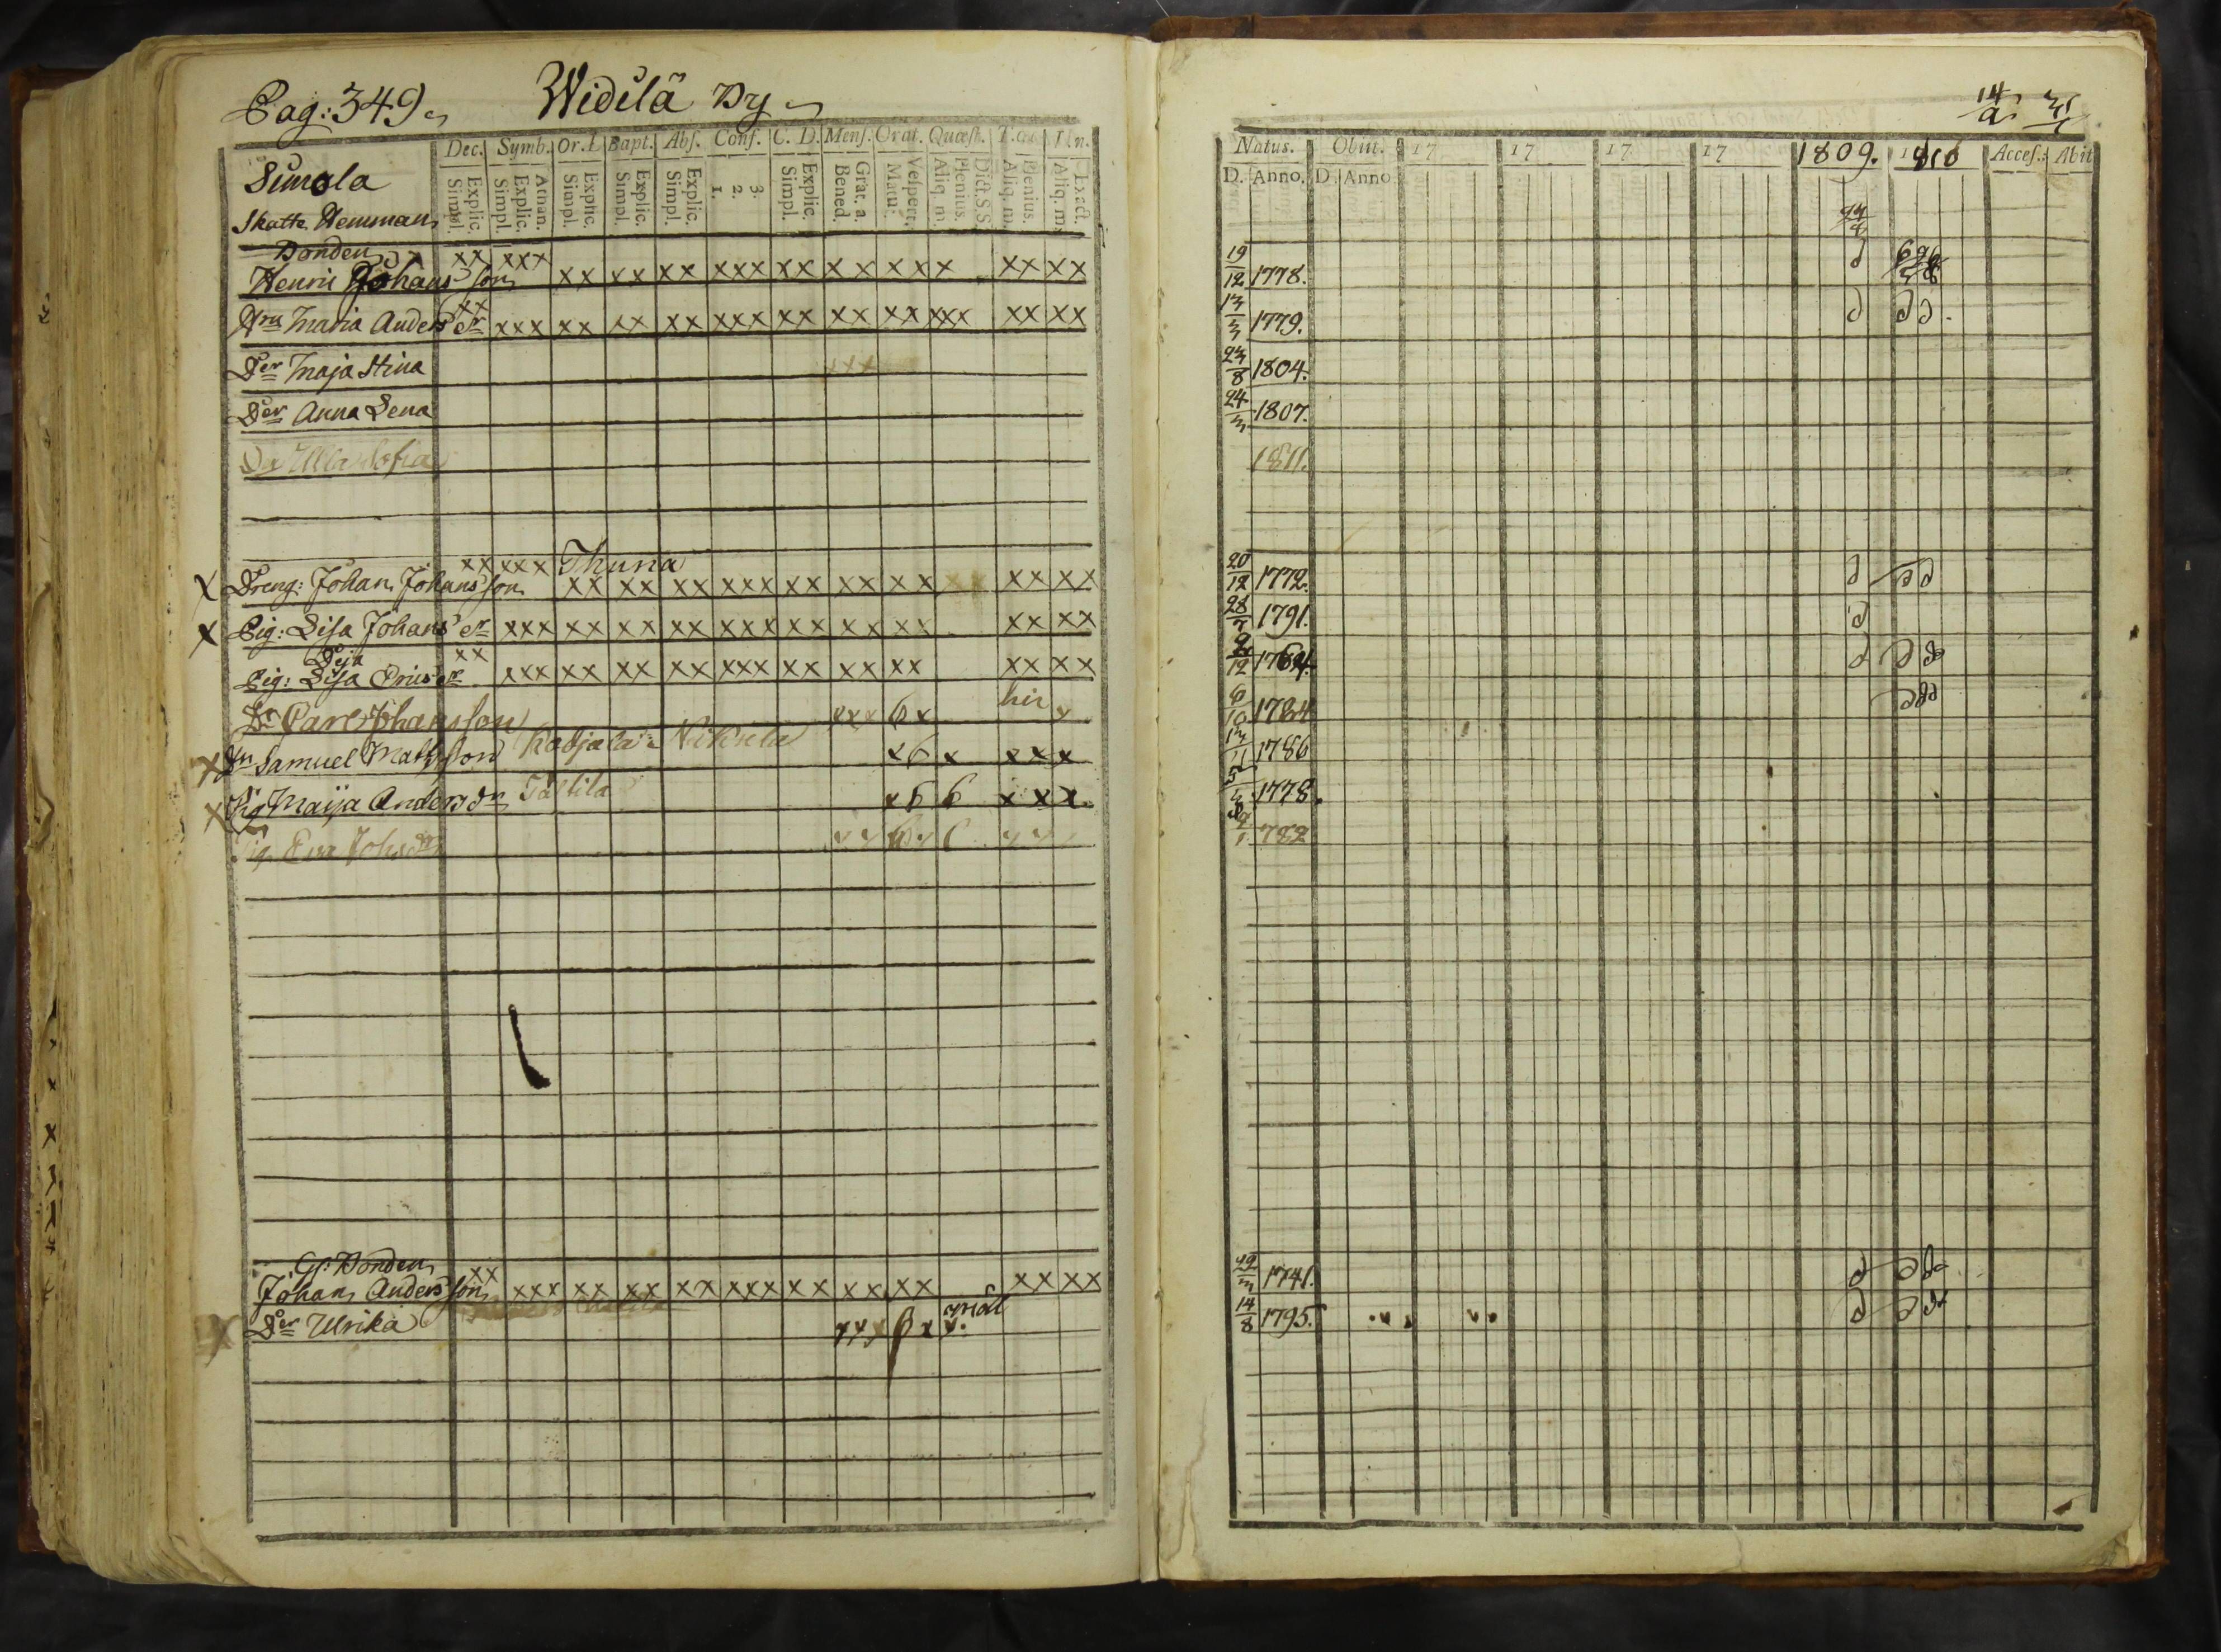 Pag: 349. Widilä By
Dec. Symb. Or.L. Bapt. Abs. Conf. C. D. Mens. Orat. Quæst. T.
Simola
Explic. Simpl. Athan. Explic. Simpl. Explic. Simpl. Explic. Simpl. Explic. Simpl. 3. 2. 1. Explic. Simpl. Grat. a. Bened. Vespert. Matut. Dict.S.S. Plenius. Aliq. m. Plenius. Aliq. m. Exact. Aliq. m.
Skatte Hemman
Bonden xx xxx
Henric Johansson xx xx xx xxx xx xx xxx xx xx
xx
Hru Maria Anders er xxx xx xx xx xxx xx xx xx xxx xx xx
Der Maja Stina xxx
Der Anna Lena
Dr Ulla Sofia
xx xxx Thuna
X Dreng: Johan Johansson xx xx xx xxx xx xx xx xx xx xx
X Pig: Lisa Johans er xxx xx xx xx xxx xx xx xx xx xx
Deja xx
Pig: Lisa Erics er xxx xx xx xx xxx xx xx xx xx xx
hir
Dr Carl Johansson xxx 6x x
X Dn Samuel Mattsson x6 x xxx
X Pig Maija Anders dr x6 6 xxx
Pig Eva Johs dr
G: Bonden xx
Johan Andersson xxx xx xx xx xxx xx xx xx xx xx
X Der Ulrika xxx
14
Natus. Obiit. 17 17 17 17 1809. 1810 Acces.: Abit
D. Anno. D. Anno
24/8
19/12 1778.
13/3 1779.
23/8 1804.
24/3 1807.
1811.
20/12 1772.
28/7 1791.
1764.
6/10 1784
13/11 1786
1778.
1782
1741.
14/8 1795.